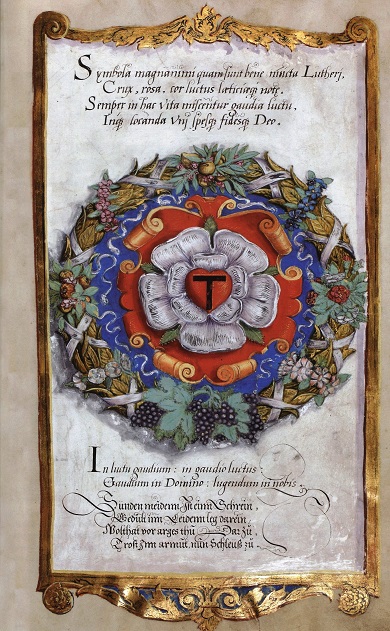 Symbola magnanimi quam sunt bene iuncta Lutheri,
Crux, rosa, cor luctus læticięq; notę.
Semper in hac vita miscentur gaudia luctu,
Inq; locanda vni spesq; fidesq; Deo.
In luctu gaudium: in gaudio luctus:
Gaudium in Domino: lugendum in nobis.
Sünden meidenn In einn Schrein,
Gedült inn Leidenn leg darein
Wolthat vor arges thü Dar zü
Trost Inn armüt, nün Schleüß zü.